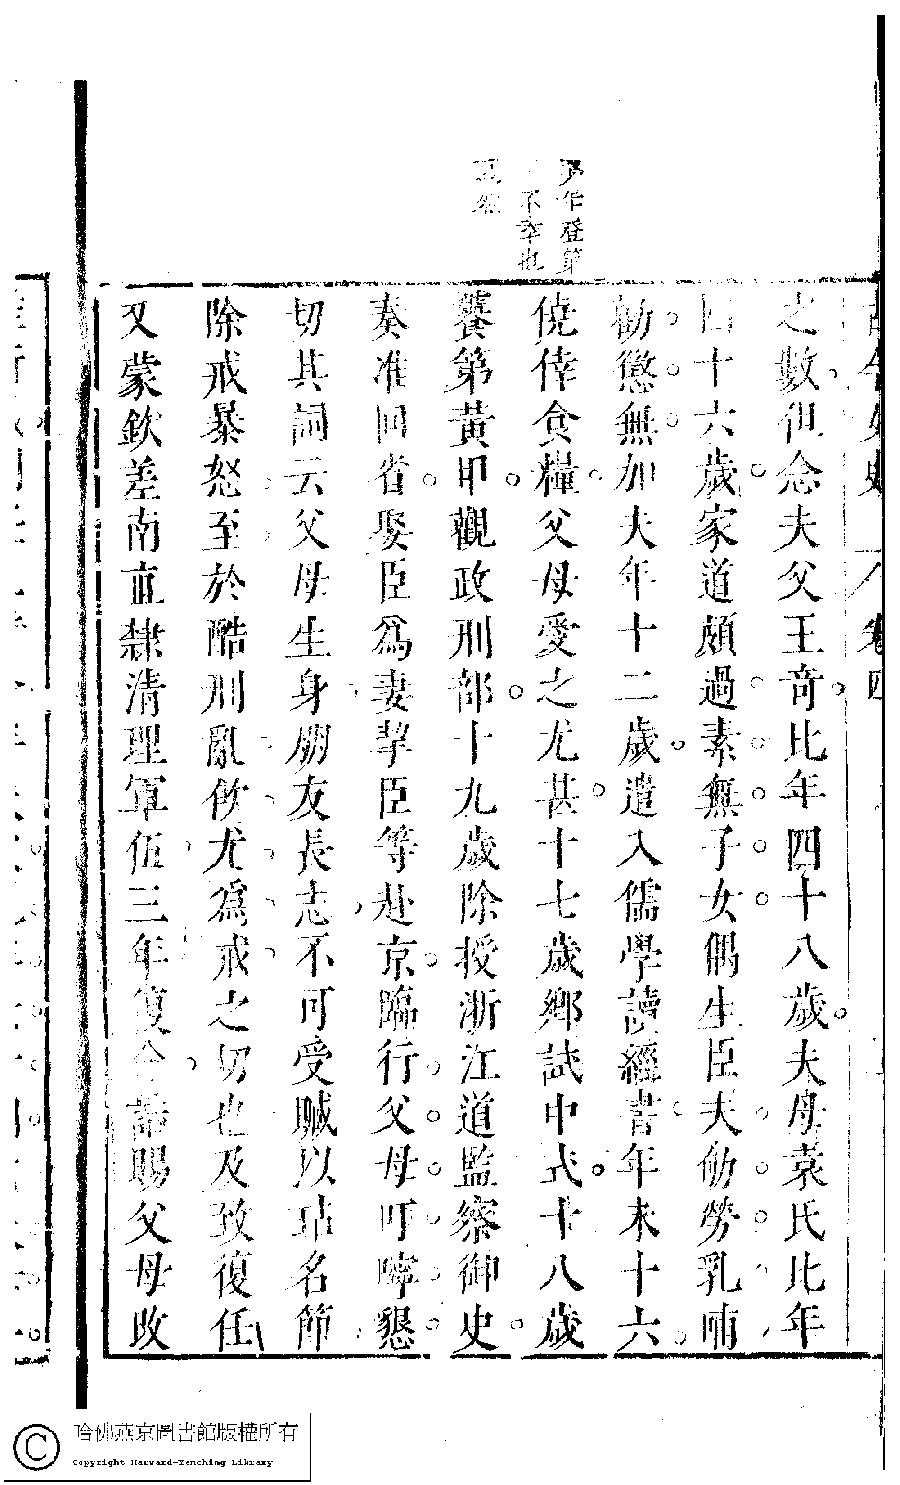 古今女史 卷四
少年登第
不幸也
之數但念夫父王奇比年四十八歲夫母袁氏比年
四十六歲家道頗過素無子女偶生臣夫劬勞乳哺
勤懲無加夫年十二歲遣入儒學讀經書年未十六
僥倖食糧父母愛之尤甚十七歲鄉試中式十八歲
饔第黃甲觀政刑部十九歲除授浙江道監察御史
奏准回省娶臣爲妻挈臣等赴京臨行父母叮嚀懇
切其詞云父母生身朋友長志不可受贓以玷名節
除戒暴怒至於酷刑亂飲尤爲戒之切也及致復任
又蒙欽差南直隸清理軍伍三年復命誥賜父母政
哈佛燕京圖書館版權所有
Copyright Harvard-Yenching Library